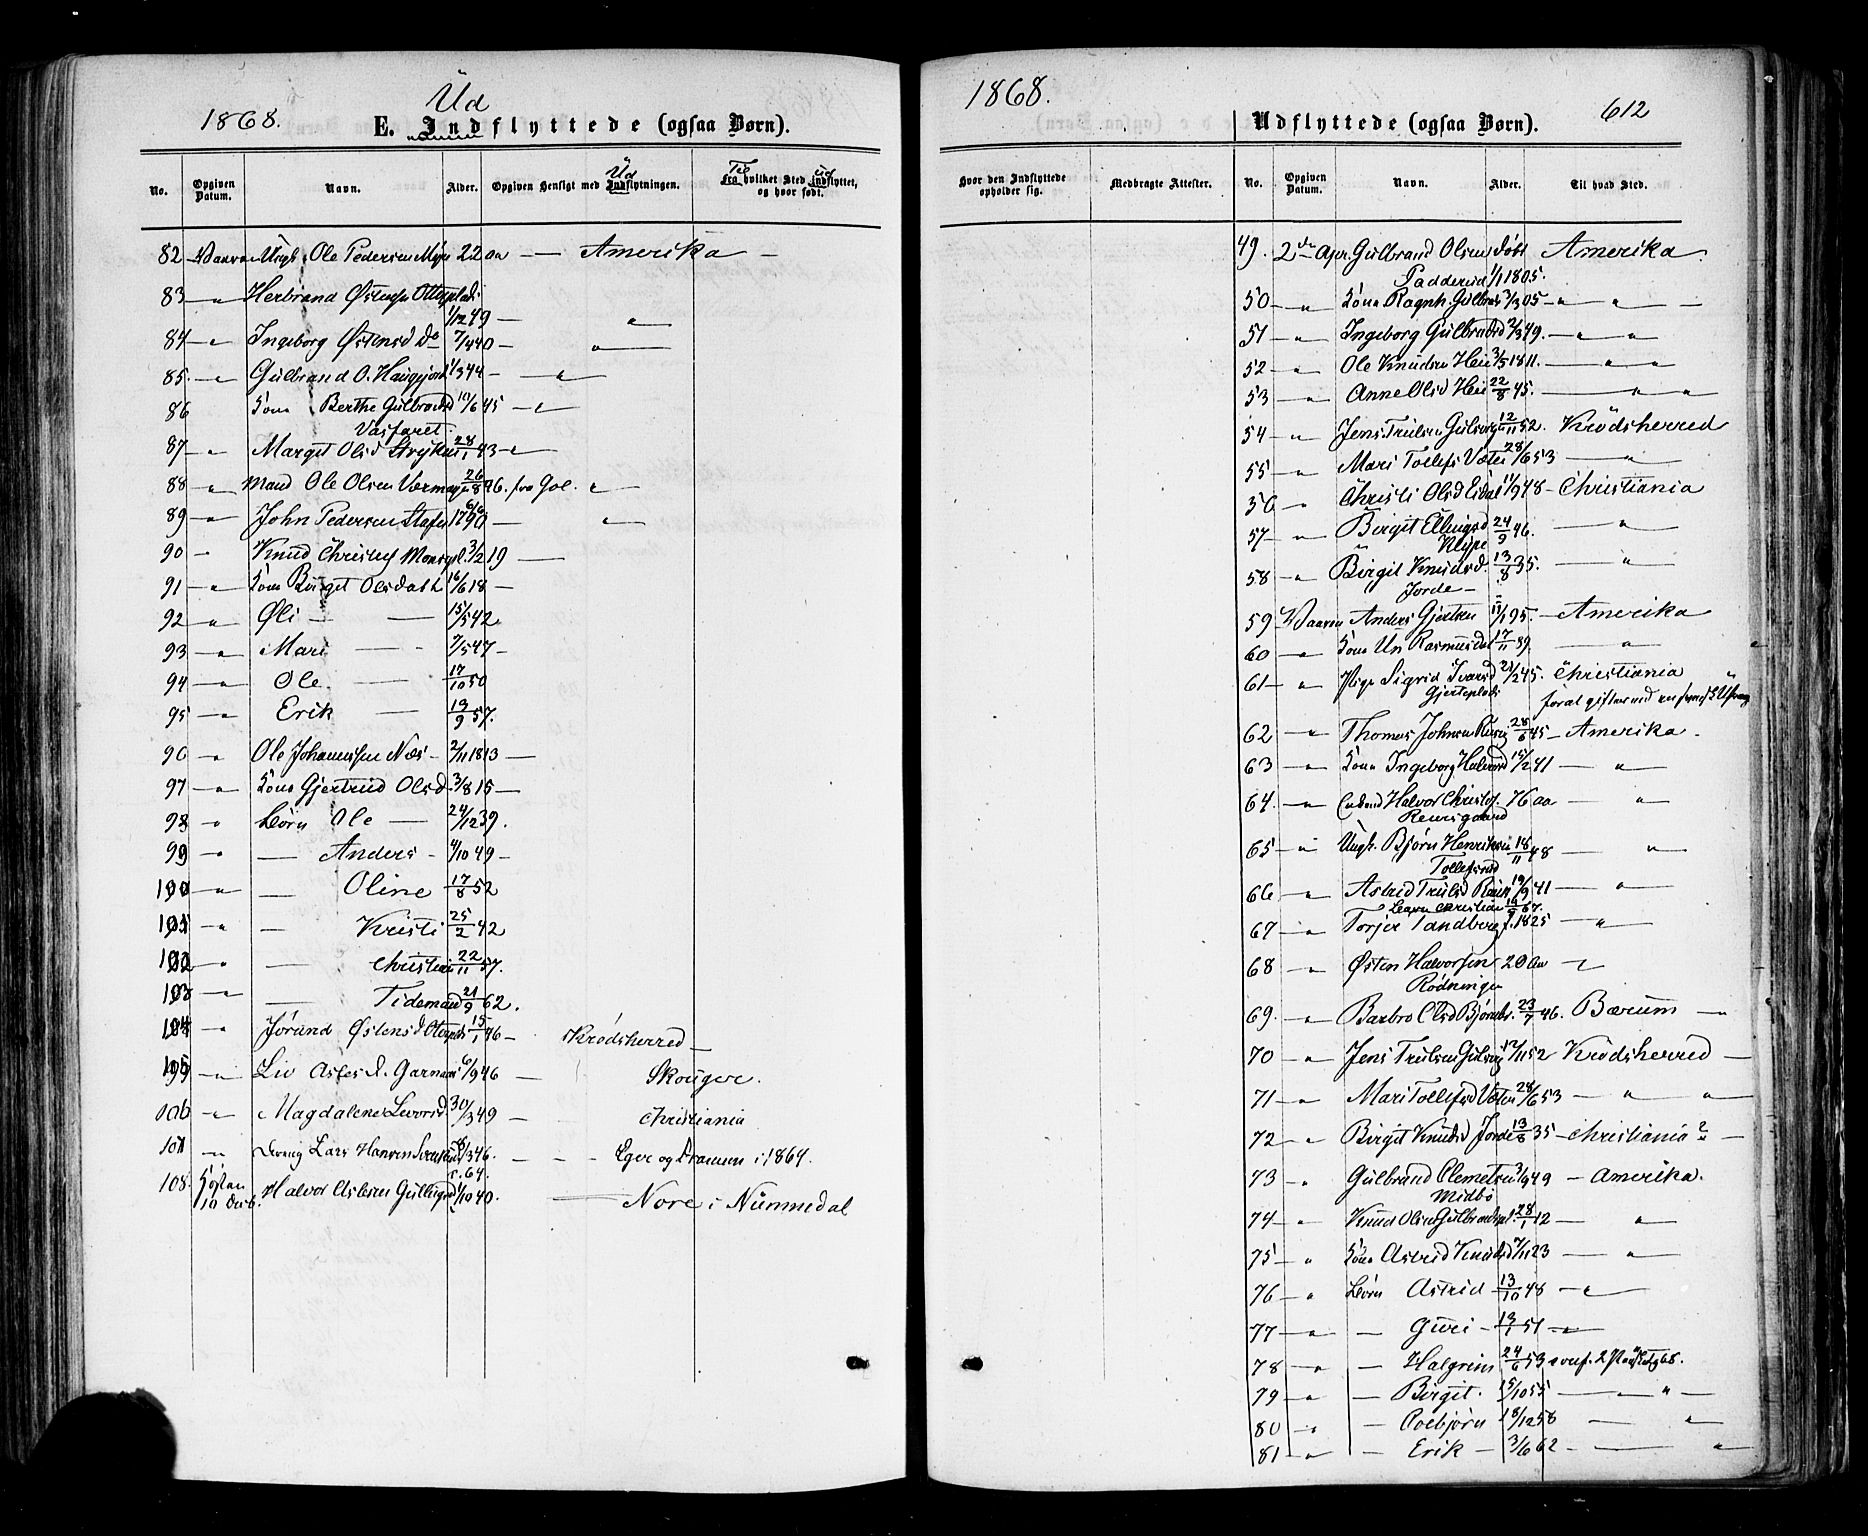 1868. Ud
E. Indflyttede (ogsaa Børn).
No. Opgiven Datum. Navn. Alder. Opgiven Hensigt med Ud Indflytningen. Til fra hvilket Sted ud indflyttet, og hvor født.
82 Vaaren Ungk. Ole Pedersen Myre 22 aa — Amerika —
83 — " Herbrand Østensen Ottesplads
1/12 49 — "
84 — " Ingeborg Østensd do 7/4 40 — "
85. — " Gulbrand O. Haugejord 1/3 44 — "
86 Kone Berthe Gulbrandsd 10/6 45 — "
Vasfaret.
87 — " Margit Olsd Stryken 28/1 43 — "
88 " Mand Ole Olsen 26/8 46. fra Gol. "
89 — " John Pedersen 6/6 1790 — "
90 " Knud Christens Monspl. 3/2 19 —
91 — " Kone Birgit Olsdatt 16/6 18 —
92 — " Øli — — 15/5 42
93 — " Mari — - 7/5 47 —
94 — " Ole. — 17/10 50
95 — " Erik — 19/9 57.
96 " Ole Johannessen Næs - 2/11 1813 —
97 — " Kone Gjertrud Olsd. 3/8 15 —
98 " Børn Ole — 24/12 39.
99 — " — Anders - 4/10 49 —
100 — " — Oline 17/8 52
101 — " — Kristi 25/2 42
102 " — Christian 22/11 57.
103 — " — Tidemand 21/9 62.
104 " Jórand Østensd 15/1 46 — Krødsherred —
105 — " Liv Aslesd. Garnaas 6/9 46 — Skouger.
106 — " Magdalene Levorsd 30/3 49 — Christiania
107 — " Lars Hansen 8/3 46. — - - Eger og Dramen i 1864.
f. 64.
108. Høsten
10 Halvor Aslesen Gulliksgd 1/10 40. — Nore i Nummedal
1868.
612
Udflyttede (ogsaa Børn).
Hvor den Indflyttede opholder sig. Medbragte Attester. No. Opgiven Datum. Navn. Alder. Til hvad Sted.
49. 2den Apr. Gulbrand Olsen døbt Amerika
Padderud 1/1 1805.
50 — " Kone Ragnh. Gulbrds 3/3 05 — " " —
51 — " Ingeborg Gulbrandsd 2/3 49. — " "
52 — " Ole Knudsen Heie 3/5 1811. — " "
53 — " Anne Olsd Heie 22/8 45. — " "
54 — " Jens Trulsen Gulsvig 12/11 52. Krødsherred
55 — " Mari Tollefs Væten 28/6 53 — "
56 — " Christi Olsd Eidal 11/9 48 — Christiania
57 — " Birgit Ellingsd 24/9 46. — "
Klype
58 — " Birgit Knudsd. 13/8 35. — "
Jorde —
59 Vaaren Anders Gjertsen 11/1 95. — Amerika
60 — " Kone Un Rasmusdat 17/11 89. — "
61 — " Pige Sigrid Ivarsd 21/2 45. Christiania
Gjerteplads
62 — " Thomas Johnsen 28/6 45 — Amerika.
63 — " Kone Ingeborg Halvorsd 15/2 41 — "
64. — " Halvor Christof. 76 aa — "
Rensgaard
65 — " Ungk. Bjørn Henriksen 18/11 48 — "
Tollefsrud
66 — " Astrid Trulsd 19/9 41 — "
Barn Christian 14/5 67.
67 — " Torjer Sandberg f. 1825 — "
68 — " Østen Halvorsen 20 aa "
Rødningen
69. — " Barbro Olsd 23/7 46. Bærum — "
70 — " Jens Trulsen Gulsvig 12/11 52 Krødsherred —
71 — " Mari Tollefsd Væten 28/6 53 — " "
72 — " Birgit Knudsd Jorde 13/8 35 — Christiania ? —
73 " Gulbrand Clemetsen 3/9 49 — Amerika.
Midbø
74 — " Knud Olsen Gulbrandspl. 28/1 12 — "
75 — " Kone Astrid Knudsd 7/11 23 — "
76 — " Børn Astrid 13/10 48 — "
77 — " — Guri — 13/1 51 — "
78 — " — Halgrim 24/6 53
79 — " — Birgit. 15/10 55 — " —
80 — " — Colbjørn 18/12 58 — "
81 — " — Erik — 3/6 62 — "